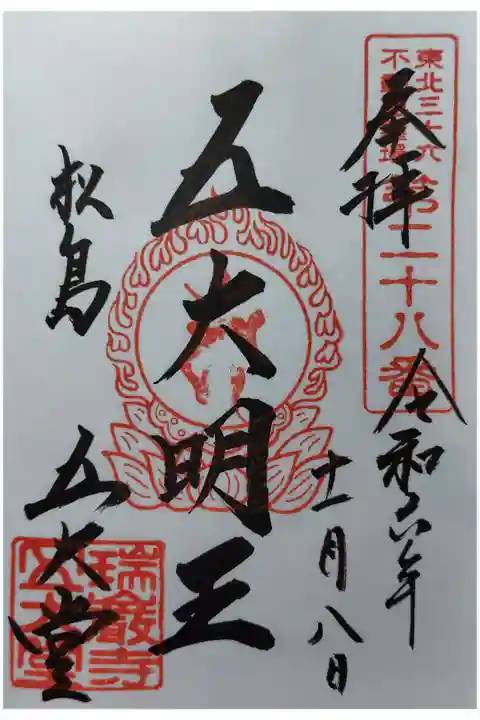 東北三十六
不動尊霊場
第二十八番
奉拝
令和六年
十一月八日
五大明王
松島
五大堂
瑞巌寺
五大堂